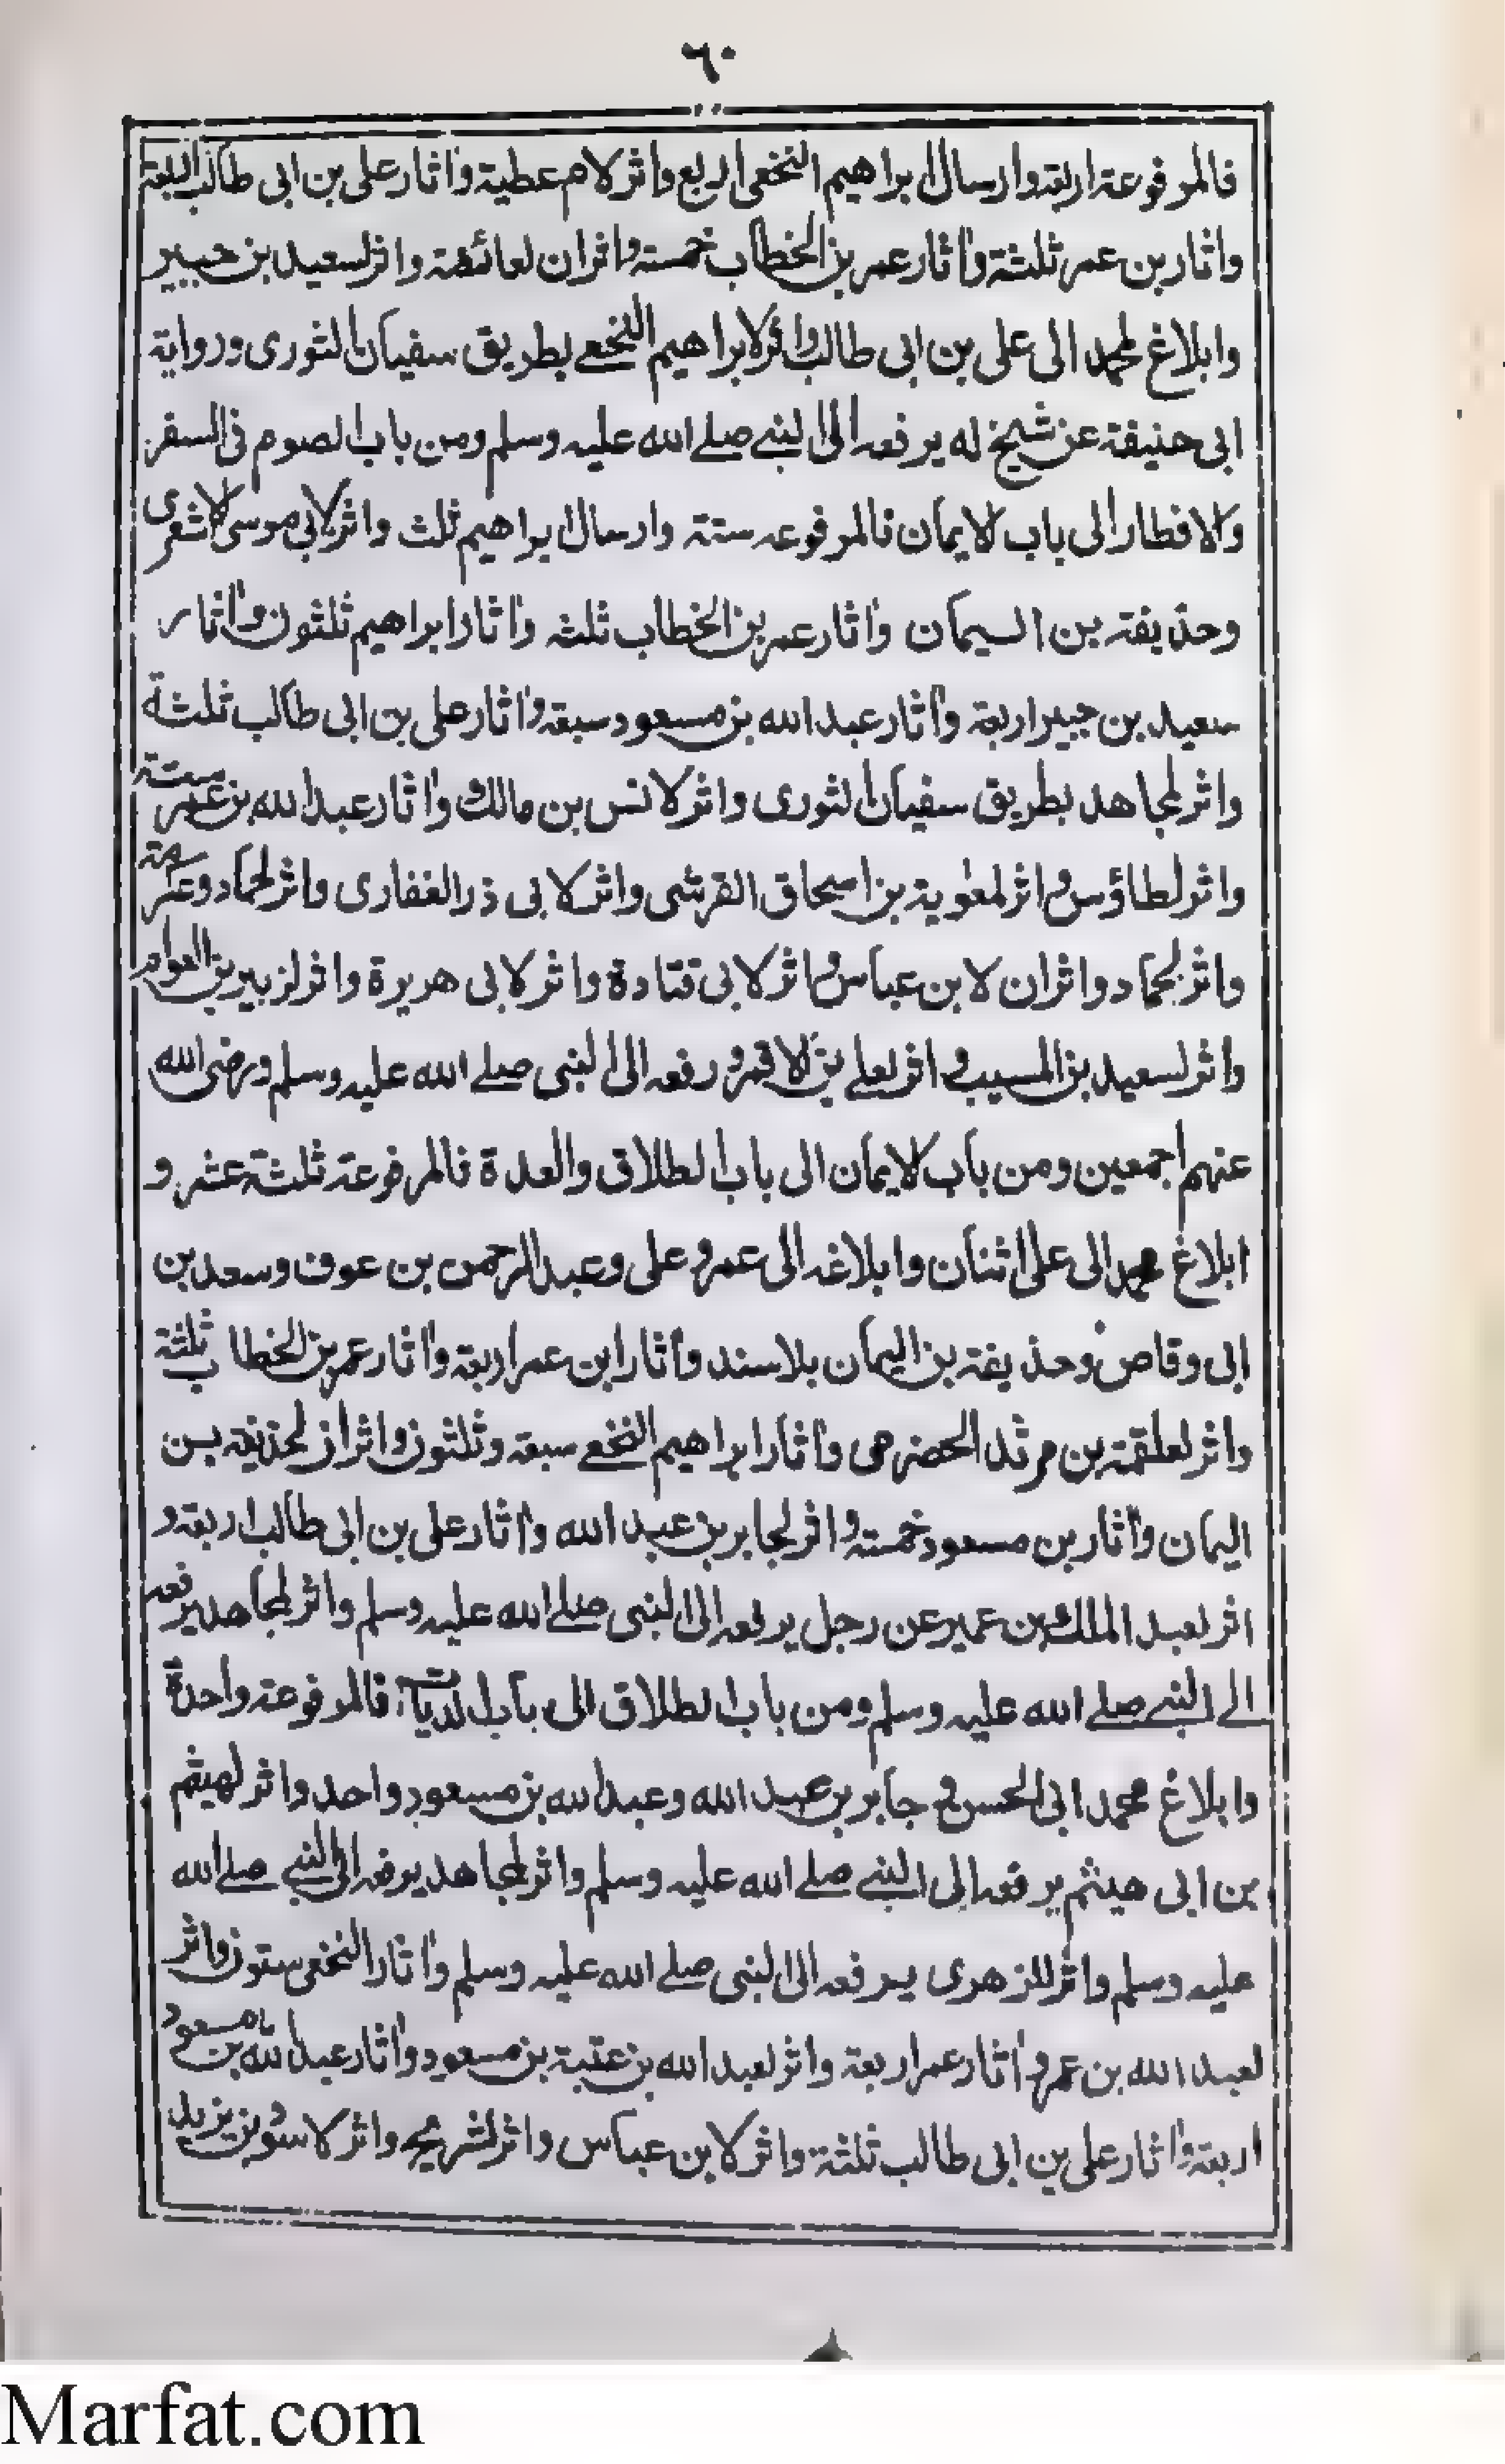 ٦٠
فالمرفوعة اربعة وارسال ابراهيم النخعى اربع واثر لام عطية واٰثار على بن ابى طالب اربعة
واٰثار بن عمر ثلثة واٰثار عمر بن الخطاب خمسته واثران لعائشة واثر لسعيد بن جبير
وابلاغ لمحمد الى على بن ابى طالب واثر لابراهيم النخعے بطريق سفيان الثورى ورواية
ابى حنيفة عن شيخ له يرفعه الى النبے صلے الله عليه وسلم ومن باب الصوم فى السفر
والافطار الى باب الايمان فالمرفوعه ستة وارسال ابراهيم ثلث واثر لابى موسى الاشعرى
وحذيفة بن اليمان واٰثار عمر بن الخطاب ثلثه واٰثار ابراهيم ثلثون واٰثار
سعيد بن جبير اربعة واٰثار عبد الله بن مسعود سبعة واٰثار على بن ابى طالب ثلثة
واثر لمجاهد بطريق سفيان الثورى واثر لانس بن مالك واٰثار عبد الله بن عمر ستة
واثر لطاؤس واثر لمعٰوية بن اسحاق القرشى واثر لابى ذر الغفارى واثر لحماد وعكرمة
واثر لحماد واثران لابن عباس واثر لابى قتادة واثر لابى هريرة واثر لزبير بن العوام
واثر لسعيد بن المسيب واثر لعلے بن الاقمر ورفعه الى النبى صلے الله عليه وسلم ورضى الله
عنهم اجمعين ومن باب الايمان الى باب الطلاق والعدة فالمرفوعة ثلثة عشر و
ابلاغ محمد الى على اثنان وابلاغه الى عمر وعلى وعبد الرحمن بن عوف وسعد بن
ابى وقاص وحذيفة بن اليمان بلاسند واٰثار ابن عمر اربعة واٰثار عمر بن الخطاب ثلثة
واثر لعلقمة بن مرثد الحضرمى واٰثار ابراهيم النخعے سبعة وثلثون واثران لحذيفه بن
اليمان واٰثار بن مسعود خمسته واثر لجابر بن عبد الله واٰثار على بن ابى طالب اربعة و
اثر لعبد الملك بن عمير عن رجل يرفعه الى النبى صلے الله عليه وسلم واثر لمجاهد يرفعه
الے النبے صلے الله عليه وسلم ومن باب الطلاق الى باب الديات فالمرفوعة واحدة
وابلاغ محمد ابى الحسن فى جابر بن عبد الله وعبد الله بن مسعود واحد واثر لهيثم
بن ابى هيثم يرفعه الى النبے صلے الله عليه وسلم واثر لمجاهد يرفعه الى النبے صلے الله
عليه وسلم واثر للزهرى يرفعه الى النبى صلے الله عليه وسلم واٰثار النخعى ستون واثر
لعبد الله بن عمر واٰثار عمر اربعة واثر لعبد الله بن عتبة بن مسعود واٰثار عبد الله بن مسعود
اربعة واٰثار على بن ابى طالب ثلثة واثر لابن عباس واثر لشريح واثر لاسود بن يزيد
Marfat.com